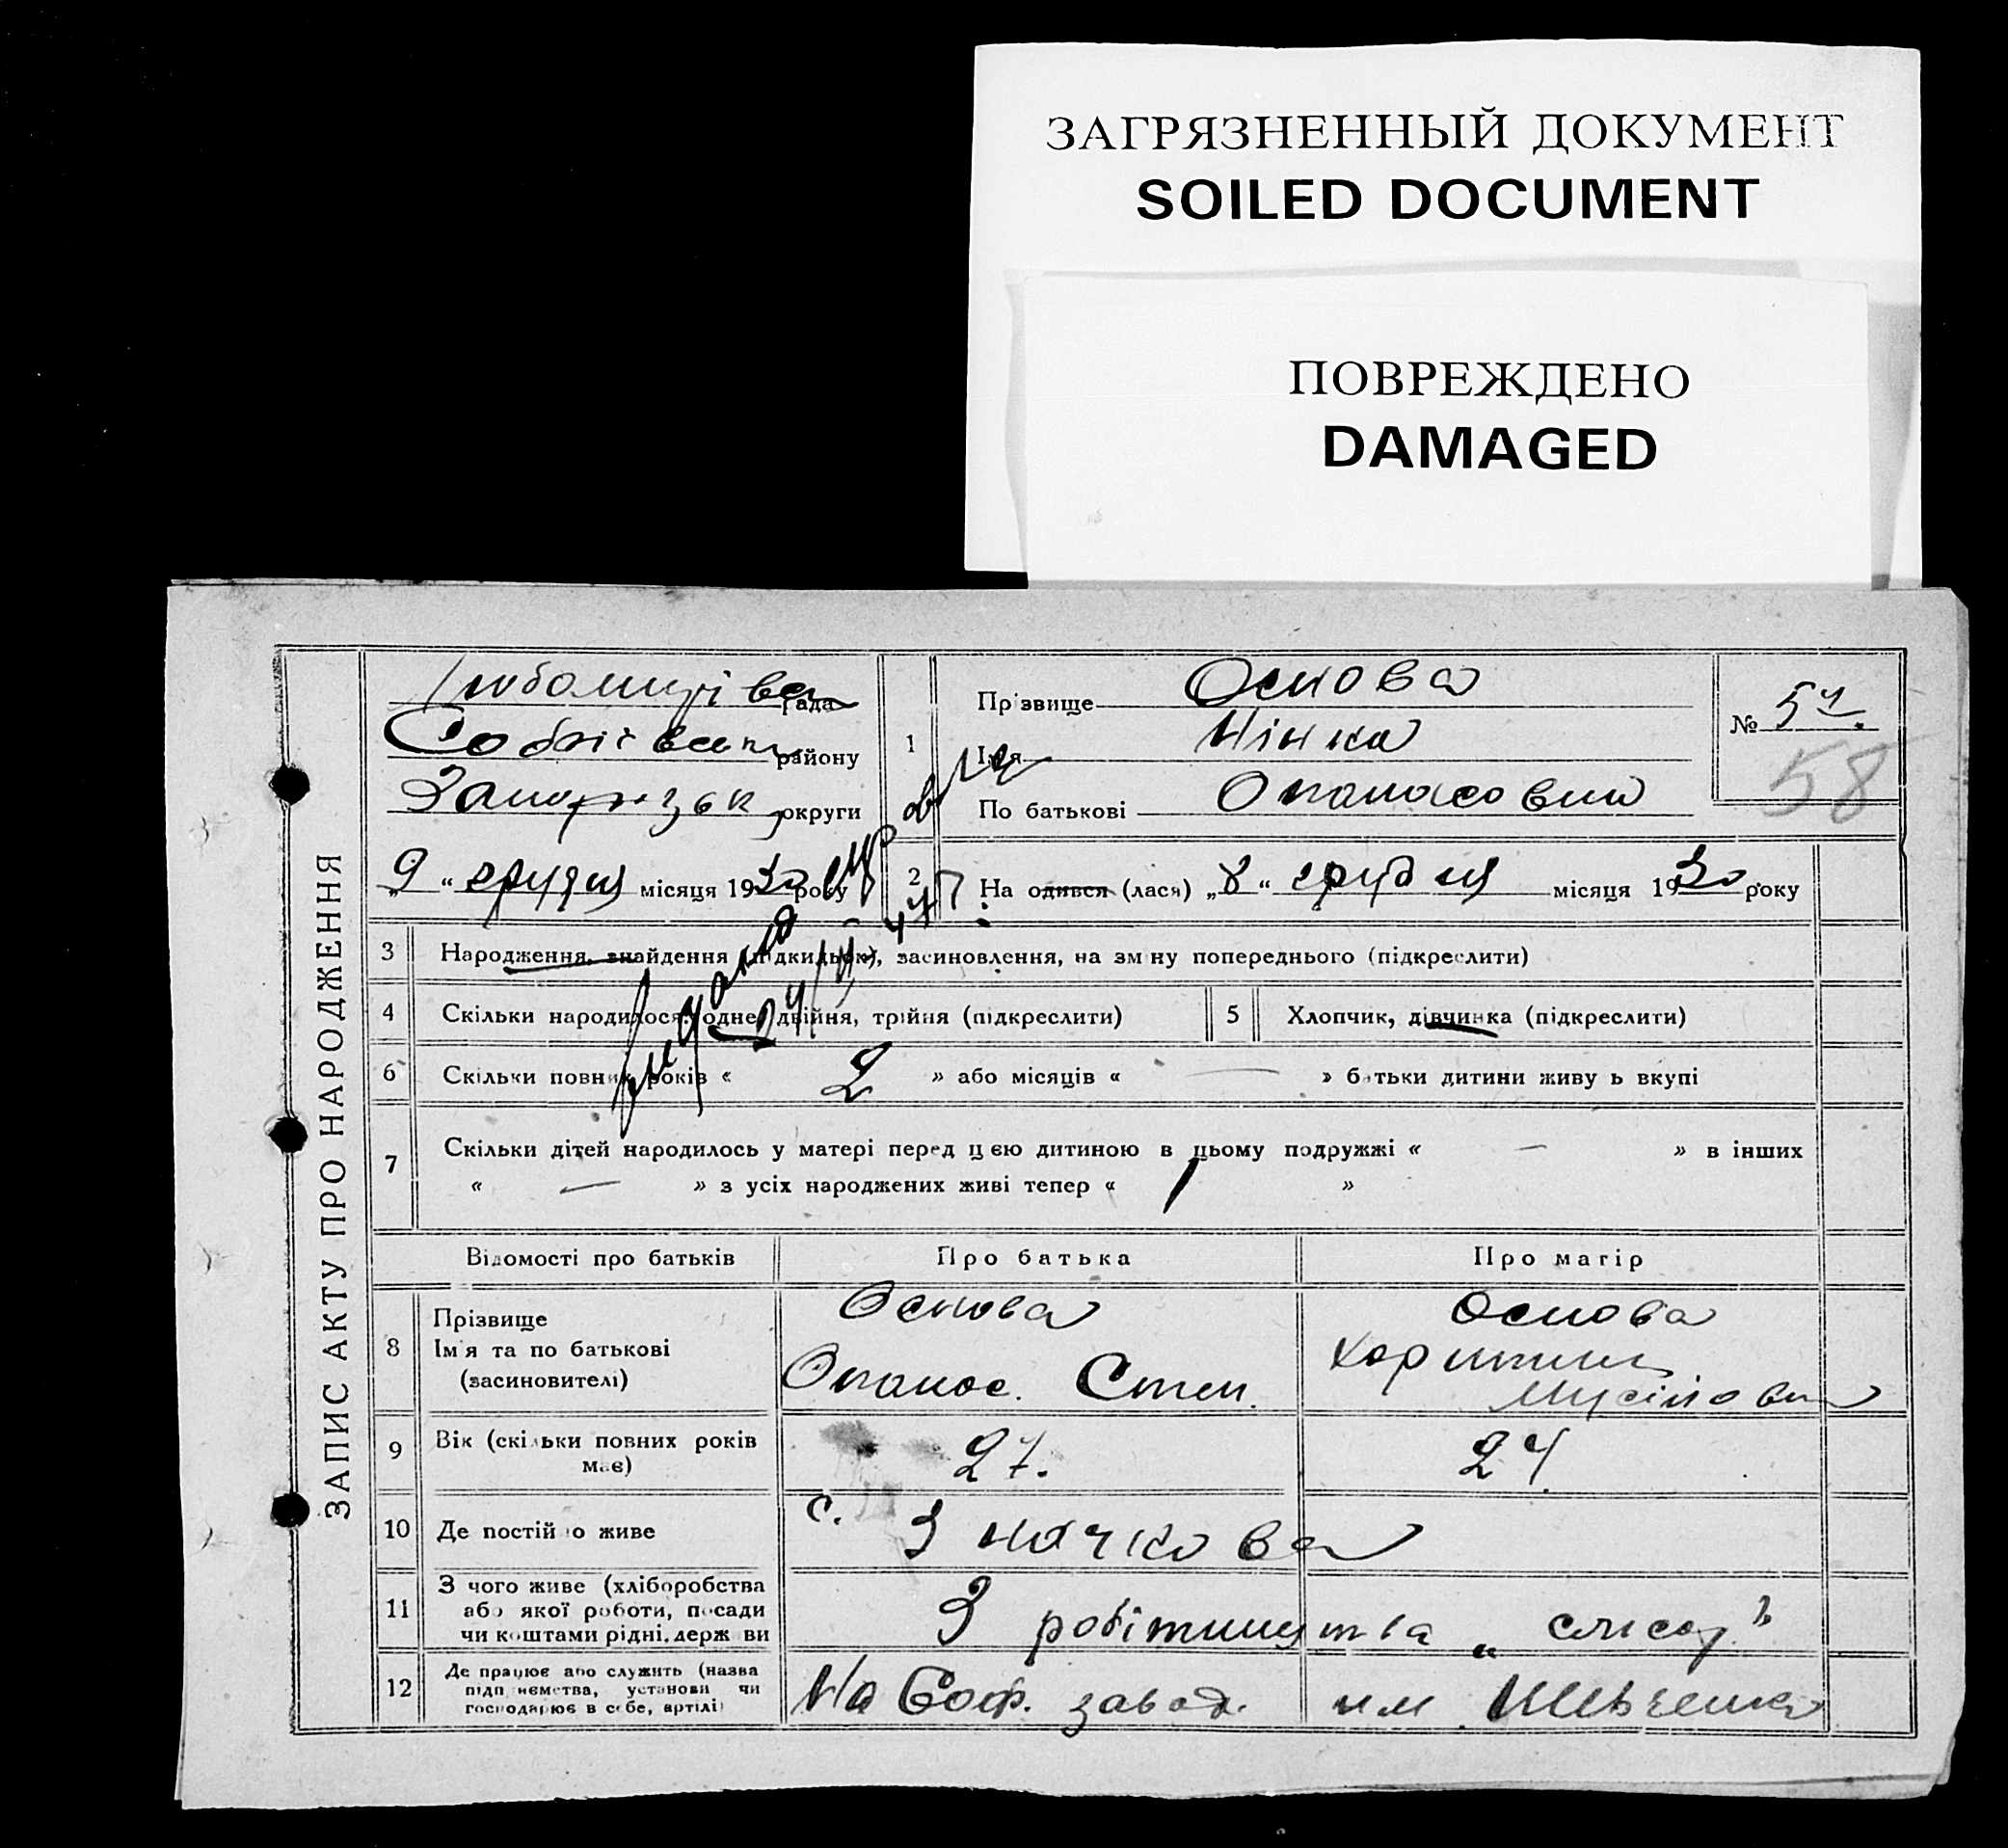 ЗАГРЯЗНЕННЫЙ ДОКУМЕНТ
SOILED DOCUMENT
ПОВРЕЖДЕНО
DAMAGED
ЗАПИС АКТУ ПРО НАРОДЖЕННЯ
рада
району
округи
„9“ грудня місяця 1930 року
1
Прізвище Основа
Ім'я Нінка
По батькові Опанасовна
№ 57.
58
2
Народився (лася) „8“ грудня місяця 1930 року
3 Народження, знайдення (підкидьок), засиновлення, на зміну попереднього (підкреслити)
4 Скільки народилося: одне, двійня, трійня (підкреслити)
5 Хлопчик, дівчинка (підкреслити)
6 Скільки повних років « 2 » або місяців « — » батьки дитини живуть вкупі
7 Скільки дітей народилось у матері перед цією дитиною в цьому подружжі « — » в інших
« — » з усіх народжених живі тепер « 1 »
Відомості про батьків Про батька Про матір
8 Прізвище Основа Основа
Ім'я та по батькові
(засиновителі) Опанас. Степ.
9 Вік (скільки повних років має) 27. 24
10 Де постійно живе с.
11 З чого живе (хліборобства або якої роботи, посади чи коштами рідні, держави З робітництва
12 Де працює або служить (назва підприємства, установи чи господарює в себе, артілі) На Соф. завод. им. Шевченка